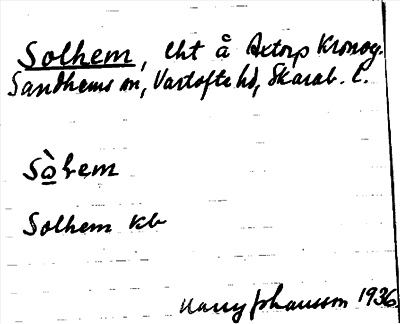 Solhem, lht å Axtorp Kronog.
Sandhems sn, Vartofte hd, Skarab. l.
Sòhem
Solhem kb
Harry Johansson 1936